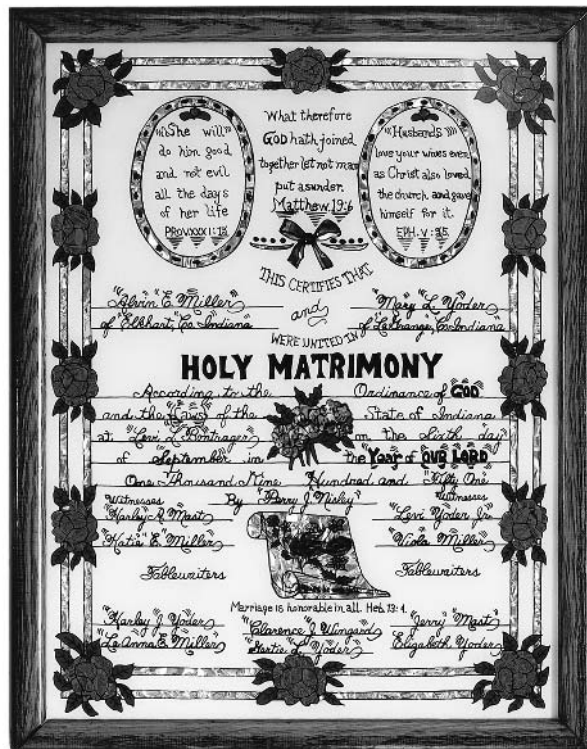 "She will"
do him good
and not evil
all the days
of her life
PROV.XXXI:12
What therefore
GOD hath joined
together let not man
put asunder.
Matthew 19:6
"Husbands"
love your wives even
as Christ also loved
the church, and gave
himself for it.
EPH. V: 25
THIS CERTIFIES THAT
"Alvin" "E. Miller" and "Mary" "L. Yoder"
of "Elkhart," Co. Indiana" of "LaGrange," Co. Indiana"
WERE UNITED IN
HOLY MATRIMONY
According to the Ordinance of GOD
and the "Laws" of the State of Indiana
at "Levi L. Bontrager" on the Sixth "day"
of September in the Year of OUR LORD
One Thousand Nine Hundred and "Fifty One"
Witnesses By "Perry J. Nisley" Witnesses
"Harley A. Mast" "Levi Yoder Jr."
"Katie" E." Miller" "Viola Miller"
Tablewaiters Tablewaiters
Marriage is honorable in all. Heb. 13:4.
"Harley J. Yoder" "Clarence J. Wingard" "Jerry" "Mast"
"LeAnna E. Miller" "Gertie" L." Yoder" Elizabeth Yoder"